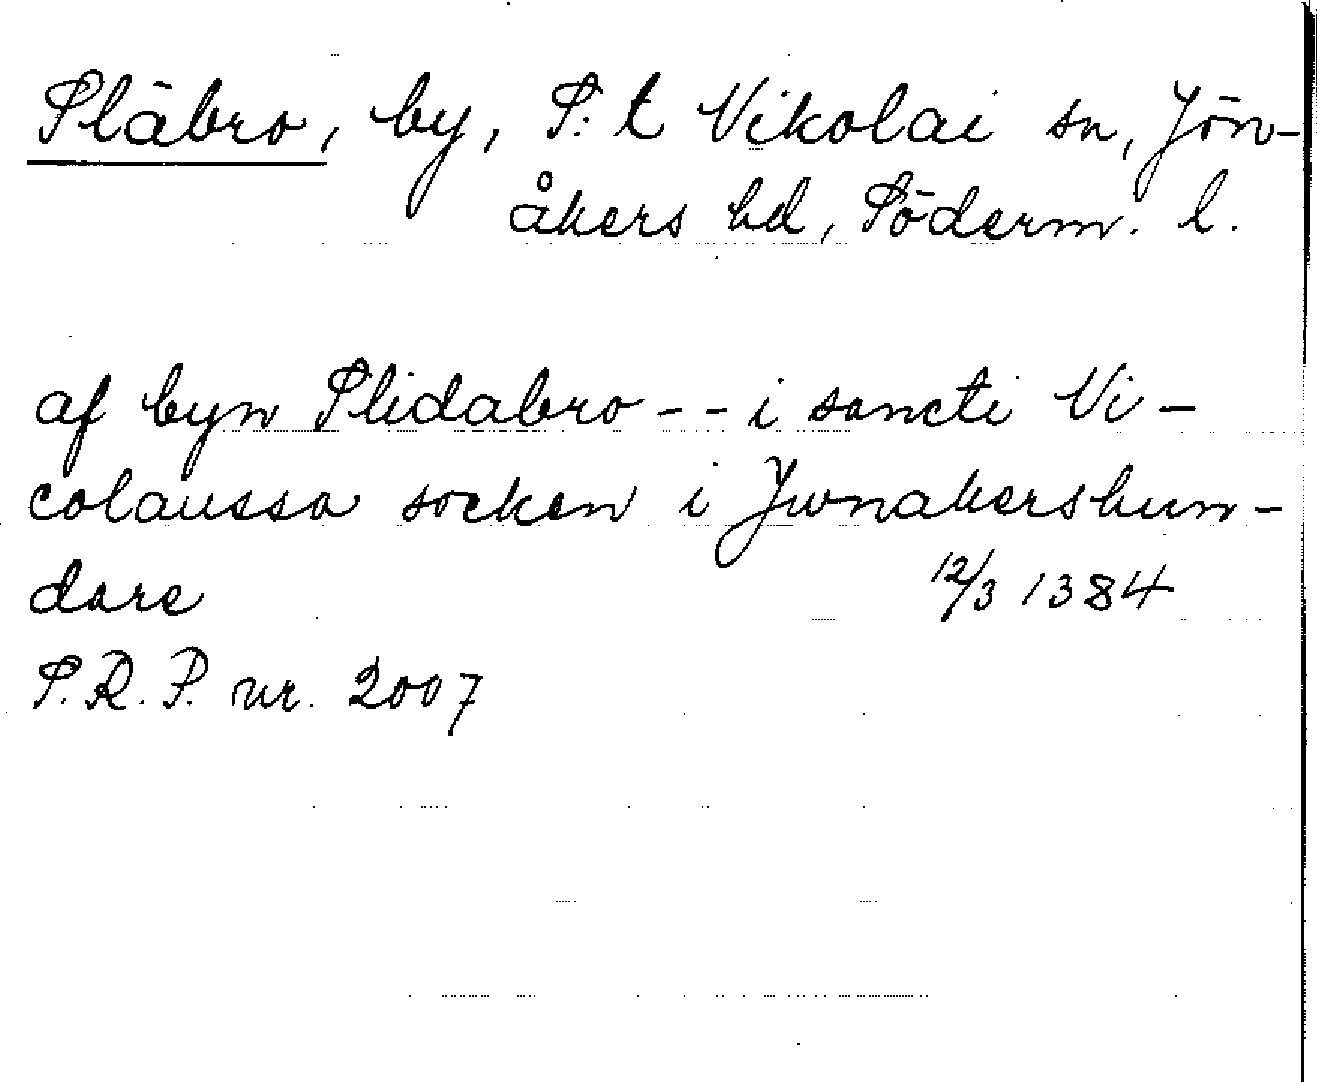 Släbro, by, S:t Nikolai sn, Jön-
åkers hd, Söderm. l.
af byn Slidabro -- i sancti Ni-
colaussa socken i Jwnakershun-
dare 12/3 1384
S.R.P. nr. 2007